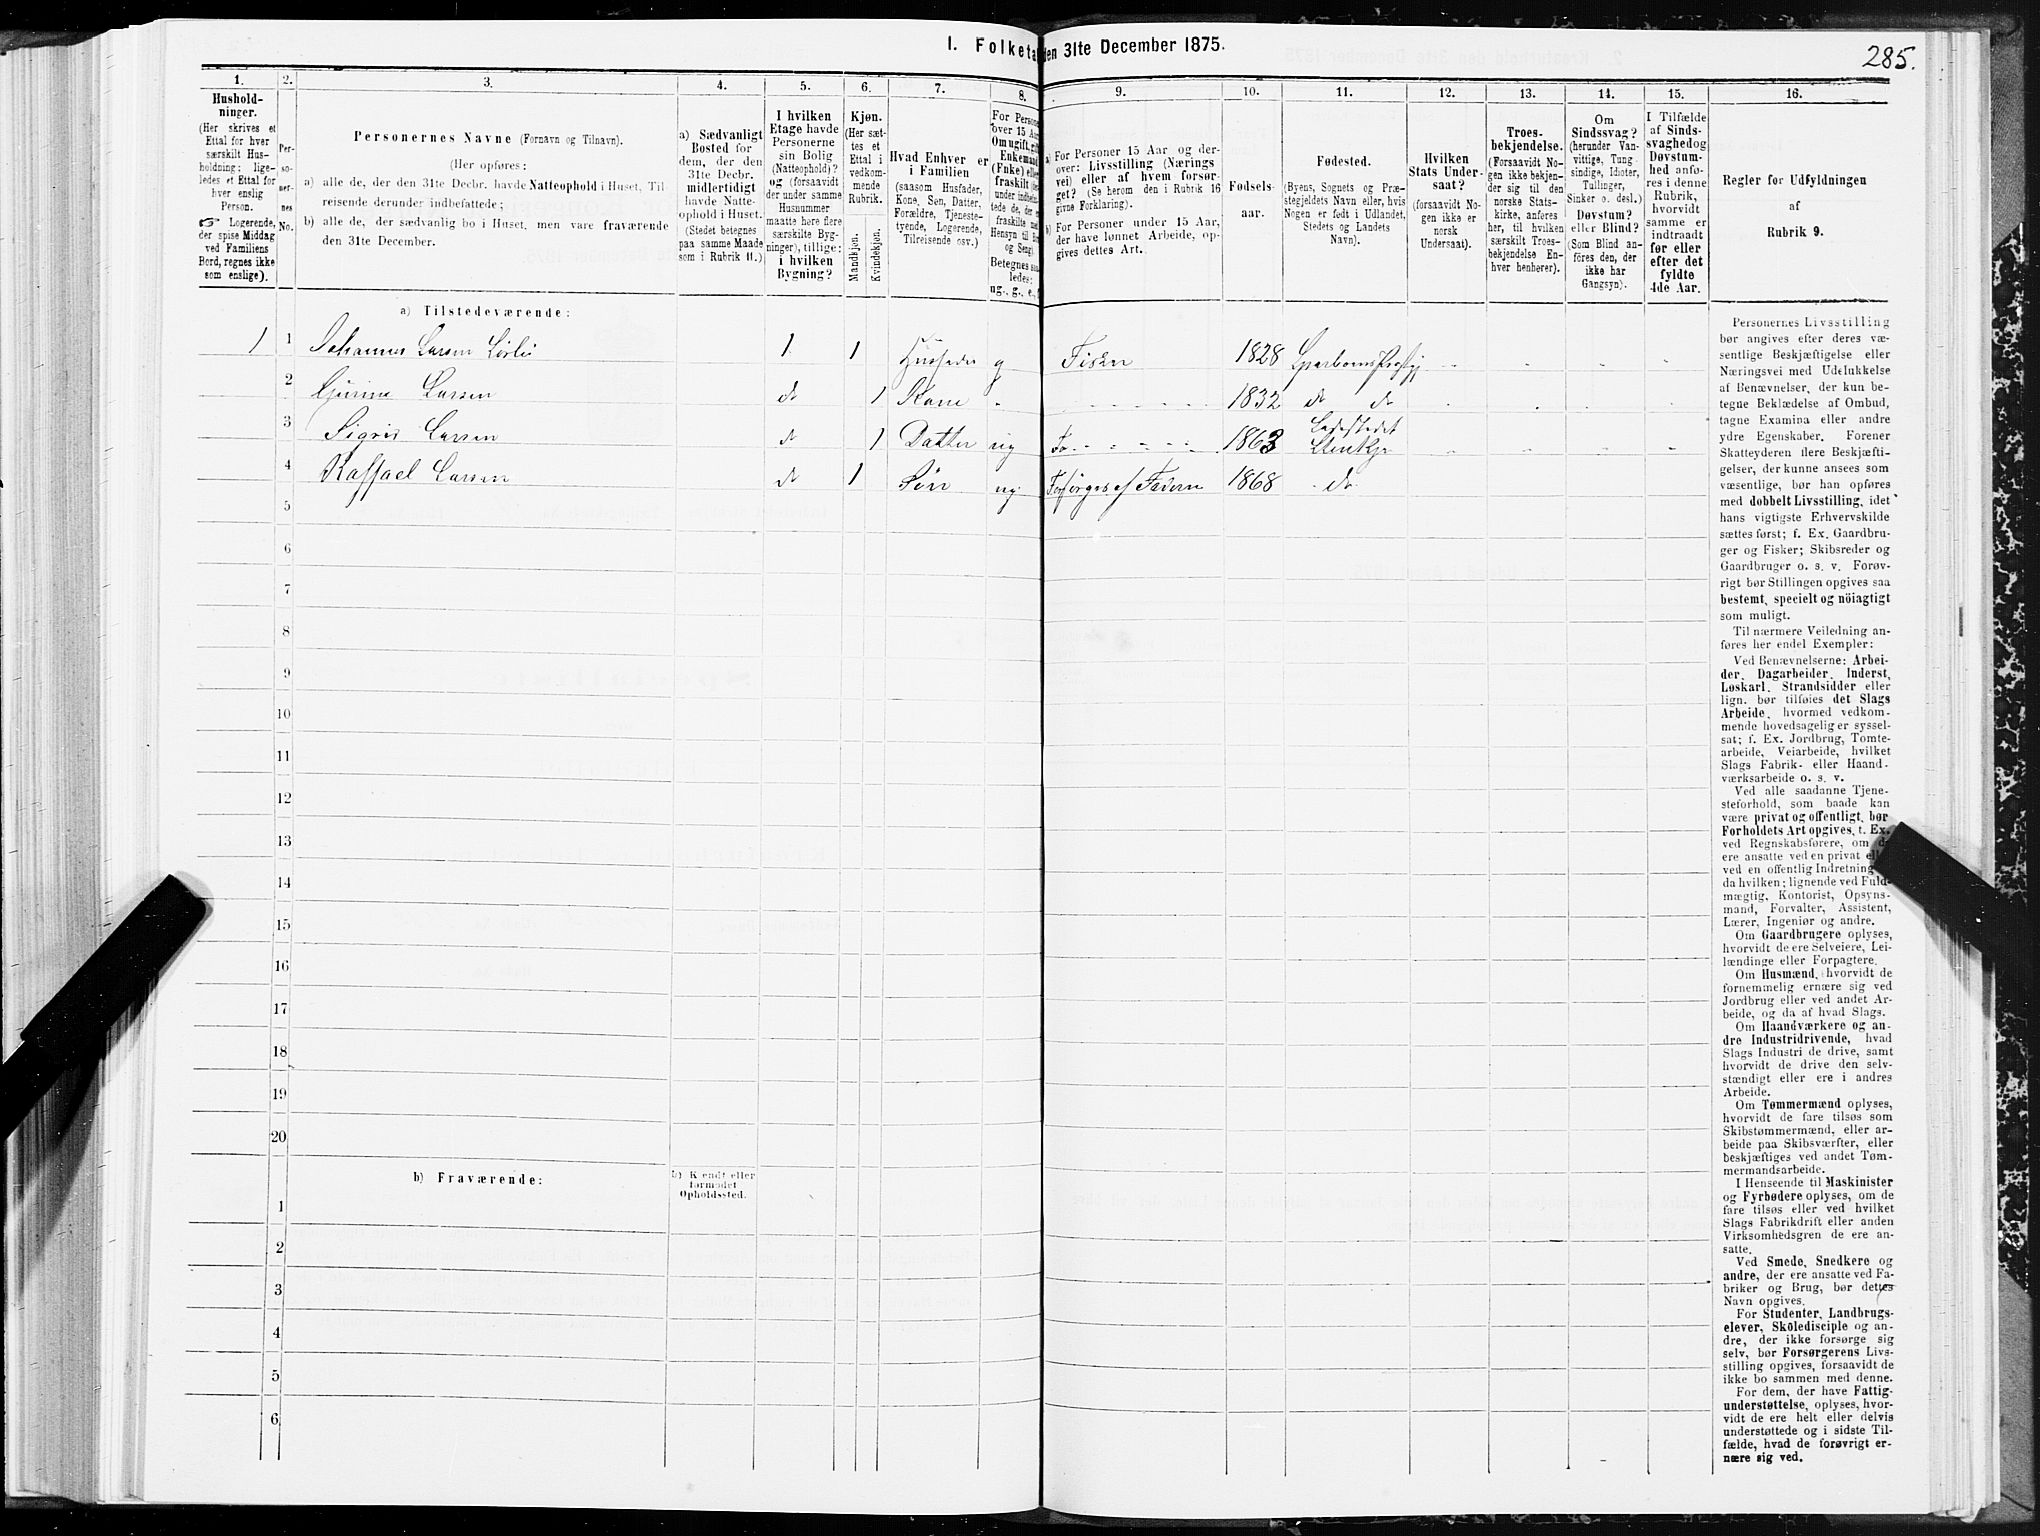 1. Folketal den 31te December 1875.
285.
1.
2.
3.
4.
5.
6.
7.
8.
9.
10.
11.
12.
13.
14.
15.
16.
Hushold-
ninger.
(Her skrives et
Ettal for hver
særskilt Hus-
holdning; lige-
ledes et Ettal for
hver enslig
Person.
☞ Logerende,
der spise Middag
ved Familiens
Bord, regnes ikke
som enslige).
Per-
so-
ner-
nes
No.
Personernes Navne (Fornavn og Tilnavn).
(Her opføres:
a) alle de, der den 31te Decbr. havde Natteophold i Huset, Til-
reisende derunder indbefattede;
b) alle de, der sædvanlig bo i Huset, men vare fraværende
den 31te December.
a) Sædvanligt
Bosted for
dem, der den
31te Decbr.
midlertidigt
havde Natte-
ophold i Huset.
(Stedet betegnes
paa samme Maade
som i Rubrik 11.)
I hvilken
Etage havde
Personerne
sin Bolig
(Natteophold)?
og (forsaavidt
der under samme
Husnummer
maatte høre flere
særskilte Byg-
ninger), tillige:
i hvilken
Bygning?
Kjøn.
(Her sæt-
tes et
Ettal i
vedkom-
mende
Rubrik.
Mandkjøn.
Kvindekjøn.
Hvad Enhver er
i Familien
(saasom Husfader,
Kone, Søn, Datter,
Forældre, Tjeneste-
tyende, Logerende,
Tilreisende osv.)
For Personer
over 15 Aar
Om ugift, gift,
Enkemand
(Enke) eller
fraskilt
a) For Personer 15 Aar og der-
over: Livsstilling (Nærings-
vei) eller af hvem forsør-
get? (Se herom den i Rubrik 16
givne Forklaring).
b) For Personer under 15 Aar,
der have lønnet Arbeide, op-
gives dettes Art.
Fødsels-
aar.
Fødested.
(Byens, Sognets og Præ-
stegjeldets Navn eller, hvis
Nogen er født i Udlandet,
Stedets og Landets
Navn).
Hvilken
Stats Under-
saat?
(forsaavidt No-
gen ikke er
norsk
Undersaat).
Troes-
bekjendelse.
(Forsaavidt No-
gen ikke bekjen-
der sig til den
norske Stats-
kirke, anføres
her, til hvilken
særskilt Troes-
bekjendelse En-
hver henhører).
Om
Sindssvag?
(herunder Van-
vittige, Tung-
sindige, Idioter,
Tullinger,
Sinker o. desl.)
Døvstum?
eller Blind?
(Som Blind an-
føres den, der
ikke har
Gangsyn).
I Tilfælde
af Sinds-
svaghed og
Døvstum-
hed anfø-
res i denne
Rubrik,
hvorvidt
samme er
indtraadt
før eller
efter det
fyldte
4de Aar.
Regler for Udfyldningen
af
Rubrik 9.
a) Tilstedeværende:
1 1 Johannes Larsen 1 1 Husfader g Fisker 1828
2 Gurine Larsen do 1 Kone 1832 do do
3 Sigrid Larsen do 1 Datter ug 1863 Ladestedet Stenkjær
4 Raffael Larsen do 1 Søn ug Forsørges af Faderen 1868 do
5
6
7
8
9
10
11
12
13
14
15
16
17
18
19
20
b) Fraværende:
b) Kjendt eller
formodet
Opholdssted.
1
2
3
4
5
6
Personernes Livsstilling
bør angives efter deres væ-
sentlige Beskjæftigelse eller
Næringsvei med Udelukkelse
af Benævnelser, der kun be-
tegne Beklædelse af Ombud,
tagne Examina eller andre
ydre Egenskaber. Forener
Skatteyderen flere Beskjæfti-
gelser, der kunne ansees som
væsentlige, bør han opføres
med dobbelt Livsstilling, idet
hans vigtigste Erhvervskilde
sættes først; f. Ex. Gaardbru-
ger og Fisker; Skibsreder og
Gaardbruger o. s. v. Forøv-
rigt bør Stillingen opgives saa
bestemt, specielt og nöiagtigt
som muligt.
Til nærmere Veiledning an-
føres her endel Exempler:
Ved Benævnelserne: Arbei-
der, Dagarbeider, Inderst,
Løskarl, Strandsidder eller
lign. bør tilføies det Slags
Arbeide, hvormed vedkom-
mende hovedsagelig er syssel-
sat; f. Ex. Jordbrug, Tomte-
arbeide, Veiarbeide, hvilket
Slags Fabrik- eller Haand-
værksarbeide o. s. v.
Ved alle saadanne Tjene-
steforhold, som baade kan
være privat og offentligt, bør
Forholdets Art opgives, t. Ex.
ved Regnskabsførere, om de
ere ansatte ved en privat eller
ved en offentlig Indretning og
da hvilken; lignende ved Fuld-
mægtig, Kontorist, Opsyns-
mand, Forvalter, Assistent,
Lærer, Ingeniør og andre.
Om Gaardbrugere oplyses,
hvorvidt de ere Selveiere, Lei-
lændinge eller Forpagtere.
Om Husmænd, hvorvidt de
fornemmelig ernære sig ved
Jordbrug eller ved andet Ar-
beide, og da af hvad Slags.
Om Haandværkere og an-
dre Industridrivende, hvad
Slags Industri de drive, samt
hvorvidt de drive den selv-
stændigt eller ere i andres
Arbeide.
Om Tømmermænd oplyses,
hvorvidt de fare tilsøs som
Skibstømmermænd, eller ar-
beide paa Skibsværfter, eller
beskjæftiges ved andet Tøm-
mermandsarbeide.
I Henseende til Maskinister
og Fyrbødere oplyses, om de
fare tilsøs eller ved hvilket
Slags Fabrikdrift eller anden
Virksomhedsgren de ere an-
satte.
Ved Smede, Snedkere og
andre, der ere ansatte ved Fa-
briker og Brug, bør dettes
Navn opgives.
For Studenter, Landbrugs-
elever, Skôledisciple og an-
dre, der ikke forsørge sig
selv, bør Forsørgerens Livs-
stilling opgives, forsaavidt de
ikke bo sammen med denne.
For dem, der have Fattig-
understøttelse, oplyses, hvor-
vidt de ere helt eller delvis
understøttede og i sidste Til-
fælde, hvad de forøvrigt er-
nære sig ved.